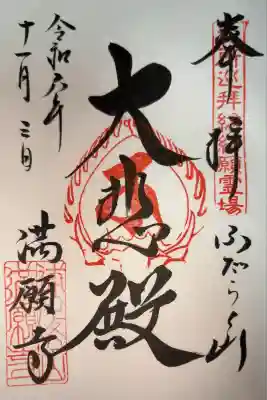 奉拝
ふだらく山
大悲殿
令和六年
十一月三日
満願寺